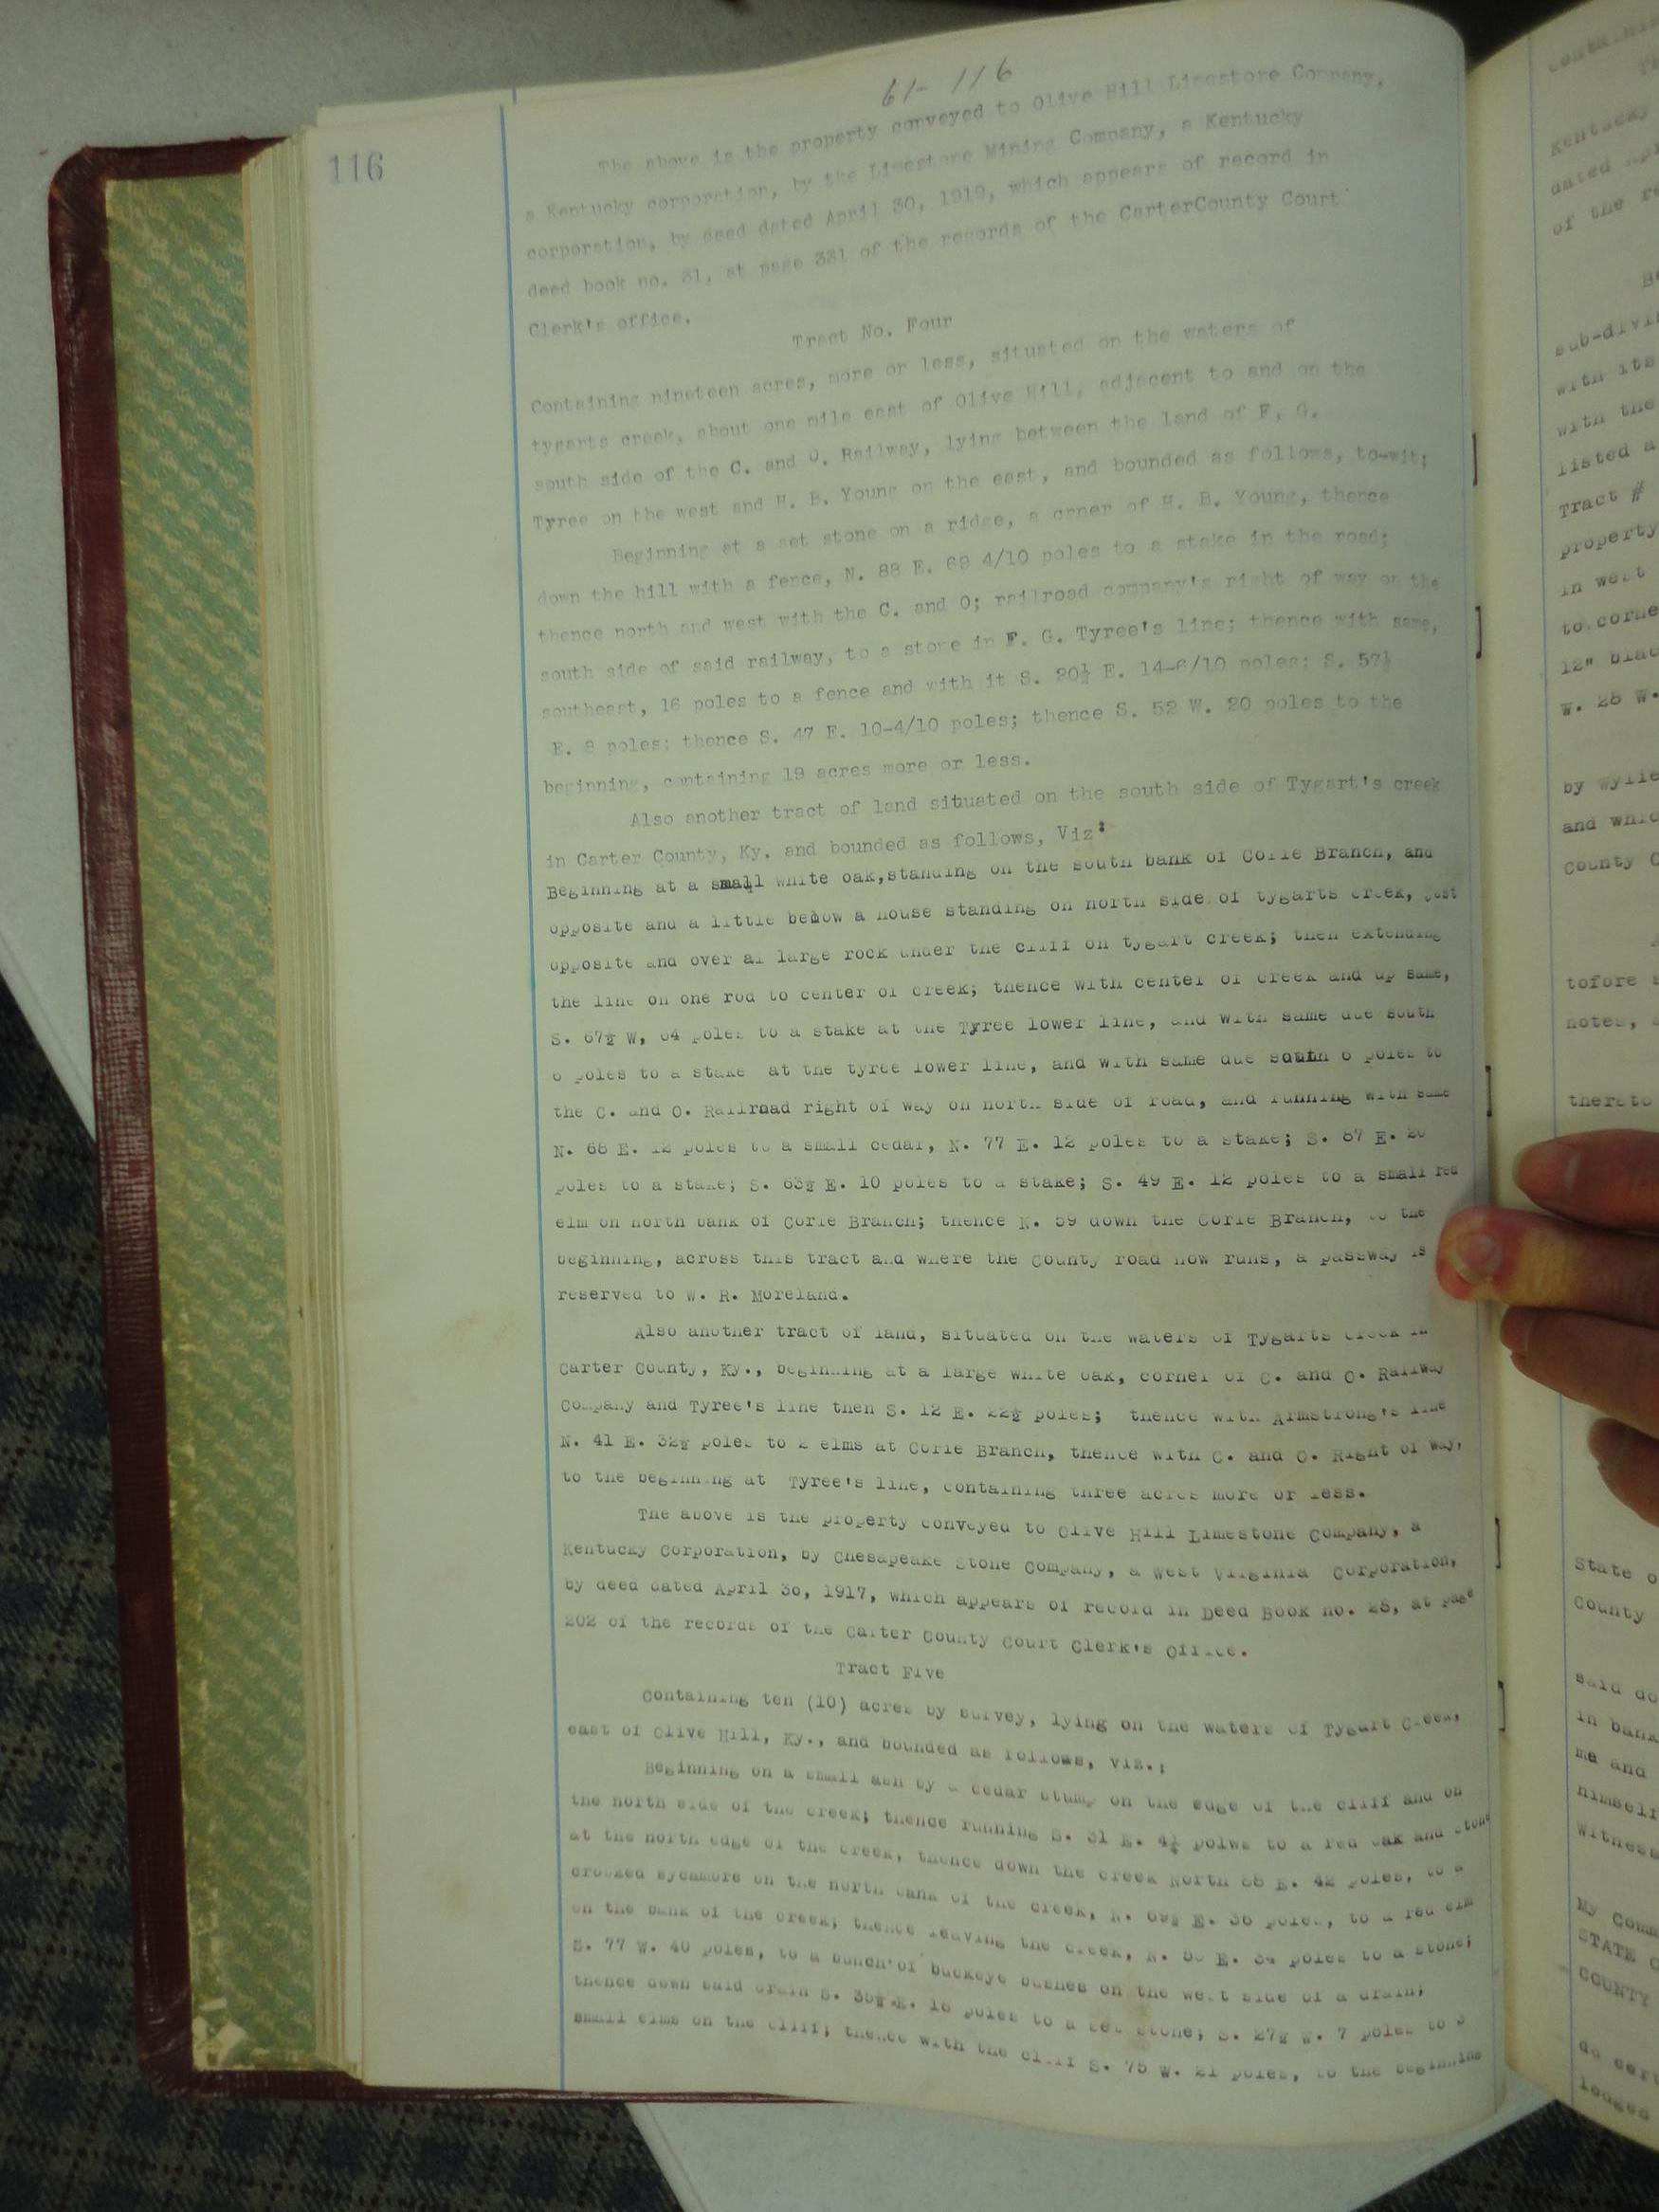 61-116
116
The above is the property conveyed to Olive Hill Limestore Company,
a Kentucky corporation, by the Limestore Mining Company, a Kentucky
corporation, by deed dated April 30, 1919, which appears of record in
deed book no. 31, at page 331 of the records of the CarterCounty Court
Clerk's office.
Tract No. Four
Containing nineteen acres, more or less, situated on the waters of
tygarts creek, about one mile east of Olive Hill, adjacent to and on the
south side of the C. and O. Railway, lying between the land of F, G.
Tyree on the west and H. B. Young on the east, and bounded as follows, to-wit;
Beginning at a set stone on a ridge, a crner of H. B. Young, thence
down the hill with a fence, N. 88 E. 69 4/10 poles to a stake in the road;
thence north and west with the C. and O; railroad company's right of way on the
south side of said railway, to a stone in F. G. Tyree's line; thence with same,
southeast, 16 poles to a fence and with it S. 20½ E. 14-6/10 poles; S. 57½
E. 8 poles; thence S. 47 E. 10-4/10 poles; thence S. 52 W. 20 poles to the
beginning, containing 19 acres more or less.
Also another tract of land situated on the south side of Tygart's creek
in Carter County, Ky. and bounded as follows, Viz:
Beginning at a small white oak,standing on the south bank of Corie Branch, and
opposite and a little below a house standing on north side of tygarts creek, just
opposite and over a large rock under the cliff on tygart creek; then extending
the line on one rod to center of creek; thence with center of creek and up same,
S. 67½ W, 64 poles to a stake at the Tyree lower line, and with same due south
6 poles to a stake at the tyree lower line, and with same due south 6 poles to
the C. and O. Railroad right of way on north side of road, and running with same
N. 68 E. 12 poles to a small cedar, N. 77 E. 12 poles to a stake; S. 87 E. 20
poles to a stake; S. 63½ E. 10 poles to a stake; S. 49 E. 12 poles to a small red
elm on north bank of Corie Branch; thence N. 59 down the Corie Branch, to the
beginning, across this tract and where the County road now runs, a passway is
reserved to W. R. Moreland.
Also another tract of land, situated on the waters of Tygarts Creek in
Carter County, Ky., beginning at a large white oak, corner of C. and O. Railway
Company and Tyree's line then S. 12 E. 22½ poles; thence with Armstrong's line
N. 41 E. 32½ poles to 2 elms at Corie Branch, thence with C. and O. Right of way,
to the beginning at Tyree's line, containing three acres more or less.
The above is the property conveyed to Olive Hill Limestone Company, a
Kentucky Corporation, by Chesapeake Stone Company, a West Virginia Corporation,
by deed dated April 30, 1917, which appears of record in Deed Book no. 28, at page
202 of the records of the Carter County Court Clerk's Office.
Tract Five
Containing ten (10) acres by survey, lying on the waters of Tygart Creek,
east of Olive Hill, Ky., and bounded as follows, viz.:
Beginning on a small ash by a cedar stump on the edge of the cliff and on
the north side of the creek; thence running S. 31 E. 4½ polws to a red oak and stone
at the north edge of the creek, thence down the creek North 88 E. 42 poles, to a
crooked sycamore on the north bank of the creek, N. 69½ E. 36 poles, to a red elm
on the bank of the creek; thence leaving the creek, N. E. 34 poles to a stone;
S. 77 W. 40 poles, to a bunch of buckeye bushes on the west side of a drain;
thence down said drain S. 35½ E. 16 poles to a set stone; S. 27½ W. 7 poles to 3
small elms on the cliff; thence with the cliff S. 75 W. 21 poles, to the beginning
Kentucky
of the
sub-divi
with its
with the
listed a
Tract #
property
in west
to corne
12" blac
W. 28 W.
by Wylie
and whic
County C
tofore
notes,
thereto
State o
County
said do
in bank
me and
himself
witness
My Comm
STATE O
COUNTY
do cert
ledged